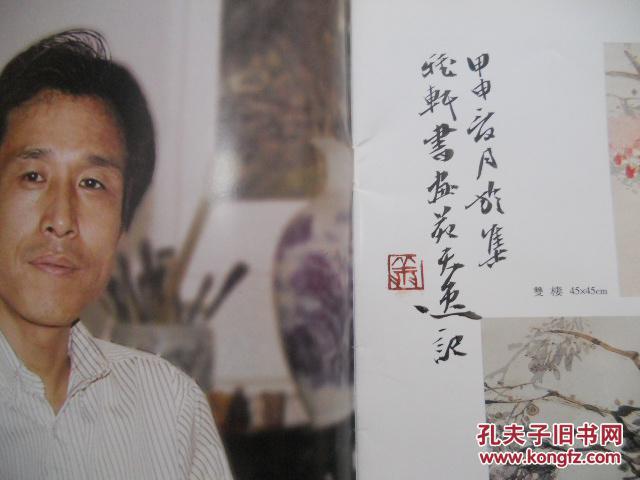 甲申夏月於集
雅軒書畫苑天逸記
雙棲 45×45cm
孔夫子旧书网
www.kongfz.com